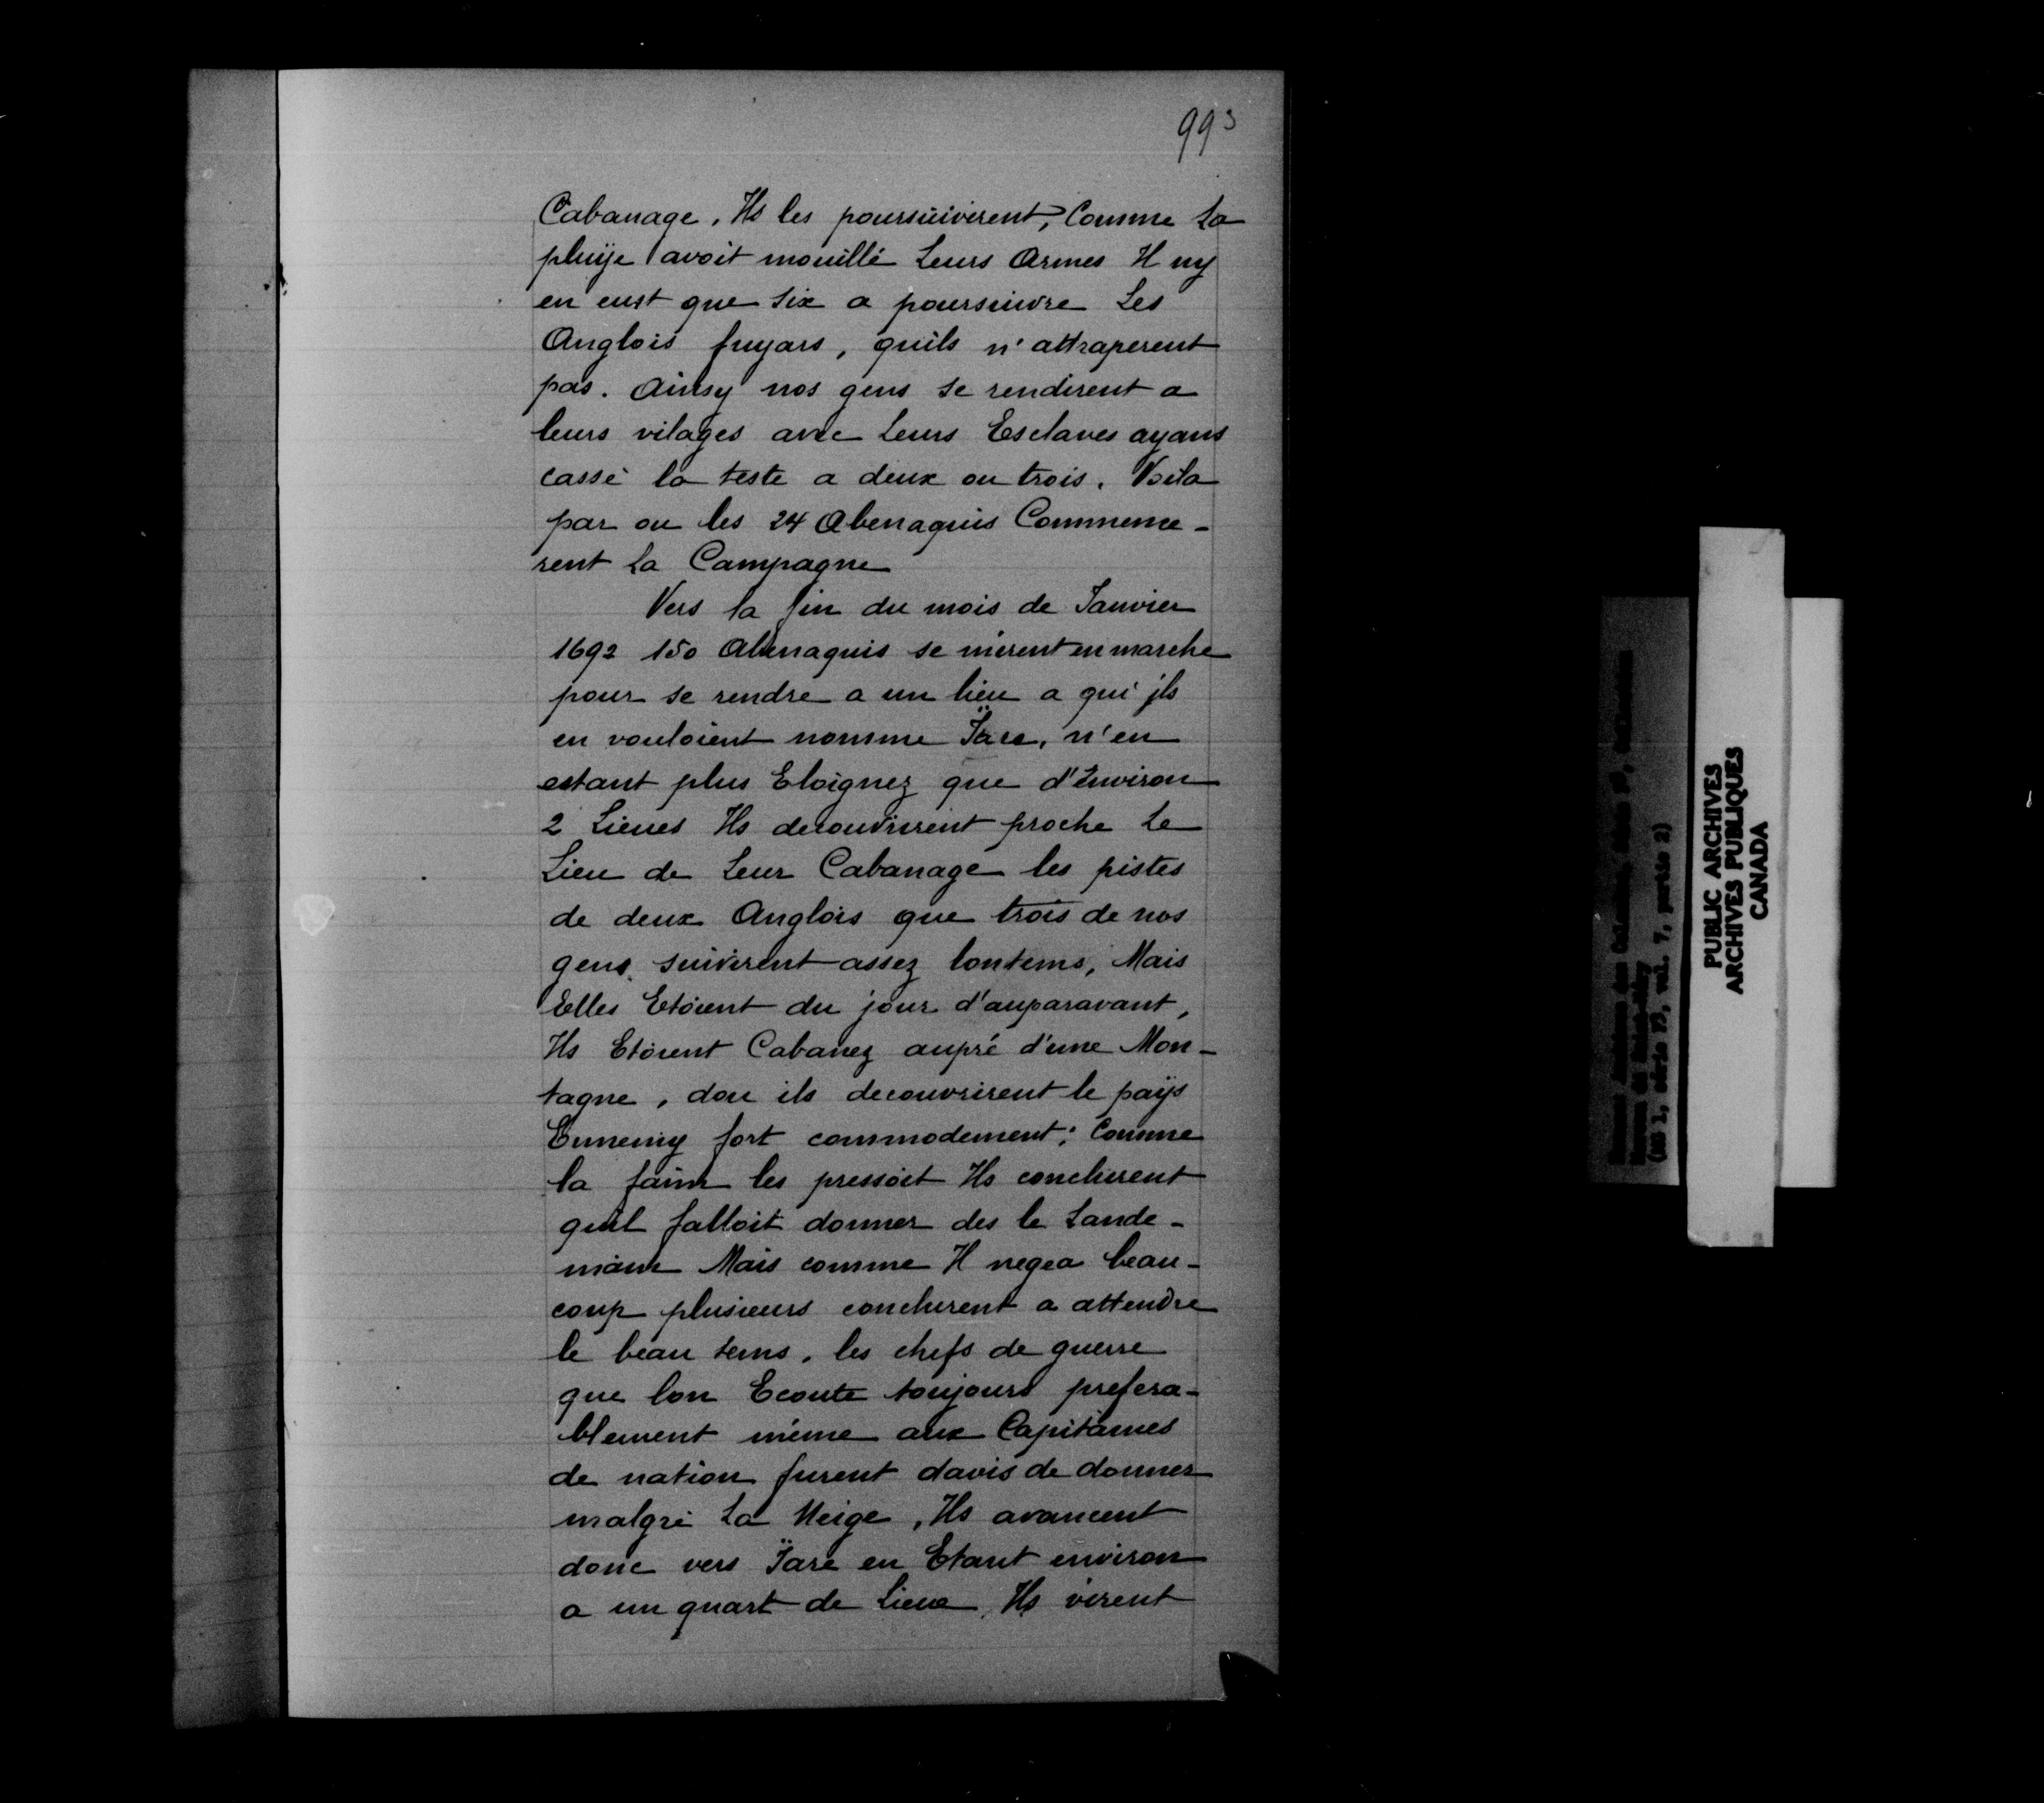 993
Cabanage, Ils les poursuivirent, Comme La
pluÿe avoit mouillé Leurs Armes Il ny
en eust que Six a poursuivre Les
Anglois fuyars, quils n'attraperent
pas. Ainsy nos gens se rendirent a
leurs vilages avec Leurs Esclaves ayans
cassé la teste a deux ou trois. Voila
par ou les 24 Abenaquis Commence-
rent La Campagne
Vers la fin du mois de Janvier
1692 150 Abenaquis se mirent en marche
pour se rendre a un lieu a qui jls
en vouloient nomme Ïarc, n'en
estant plus Eloignez que d'Environ
2 Lieues Ils decouvrirent proche Le
Lieu de Leur Cabanage les pistes
de deux Anglois que trois de nos
gens suivirent assez lontems, Mais
Elles Etoient du jour d'auparavant,
Ils Etoient Cabanez aupré d'une Mon-
tagne, dou ils decouvrirent le paÿs
Ennemy fort commodement; Comme
la faim les pressoit Ils conclurent
quil falloit donner des le Lande-
main Mais comme Il negea beau-
coup plusieurs conclurent a attendre
le beau tems, les chefs de guerre
que lon Ecoute toujours prefera-
blement méme aux Capitaines
de nation furent davis de donner
malgré La Neige, Ils avancent
donc vers Ïarc en Etant environ
a un quart de Lieue, Ils virent
PUBLIC ARCHIVES
ARCHIVES PUBLIQUES
CANADA
(MG 1, série F3, vol. 7, partie 2)